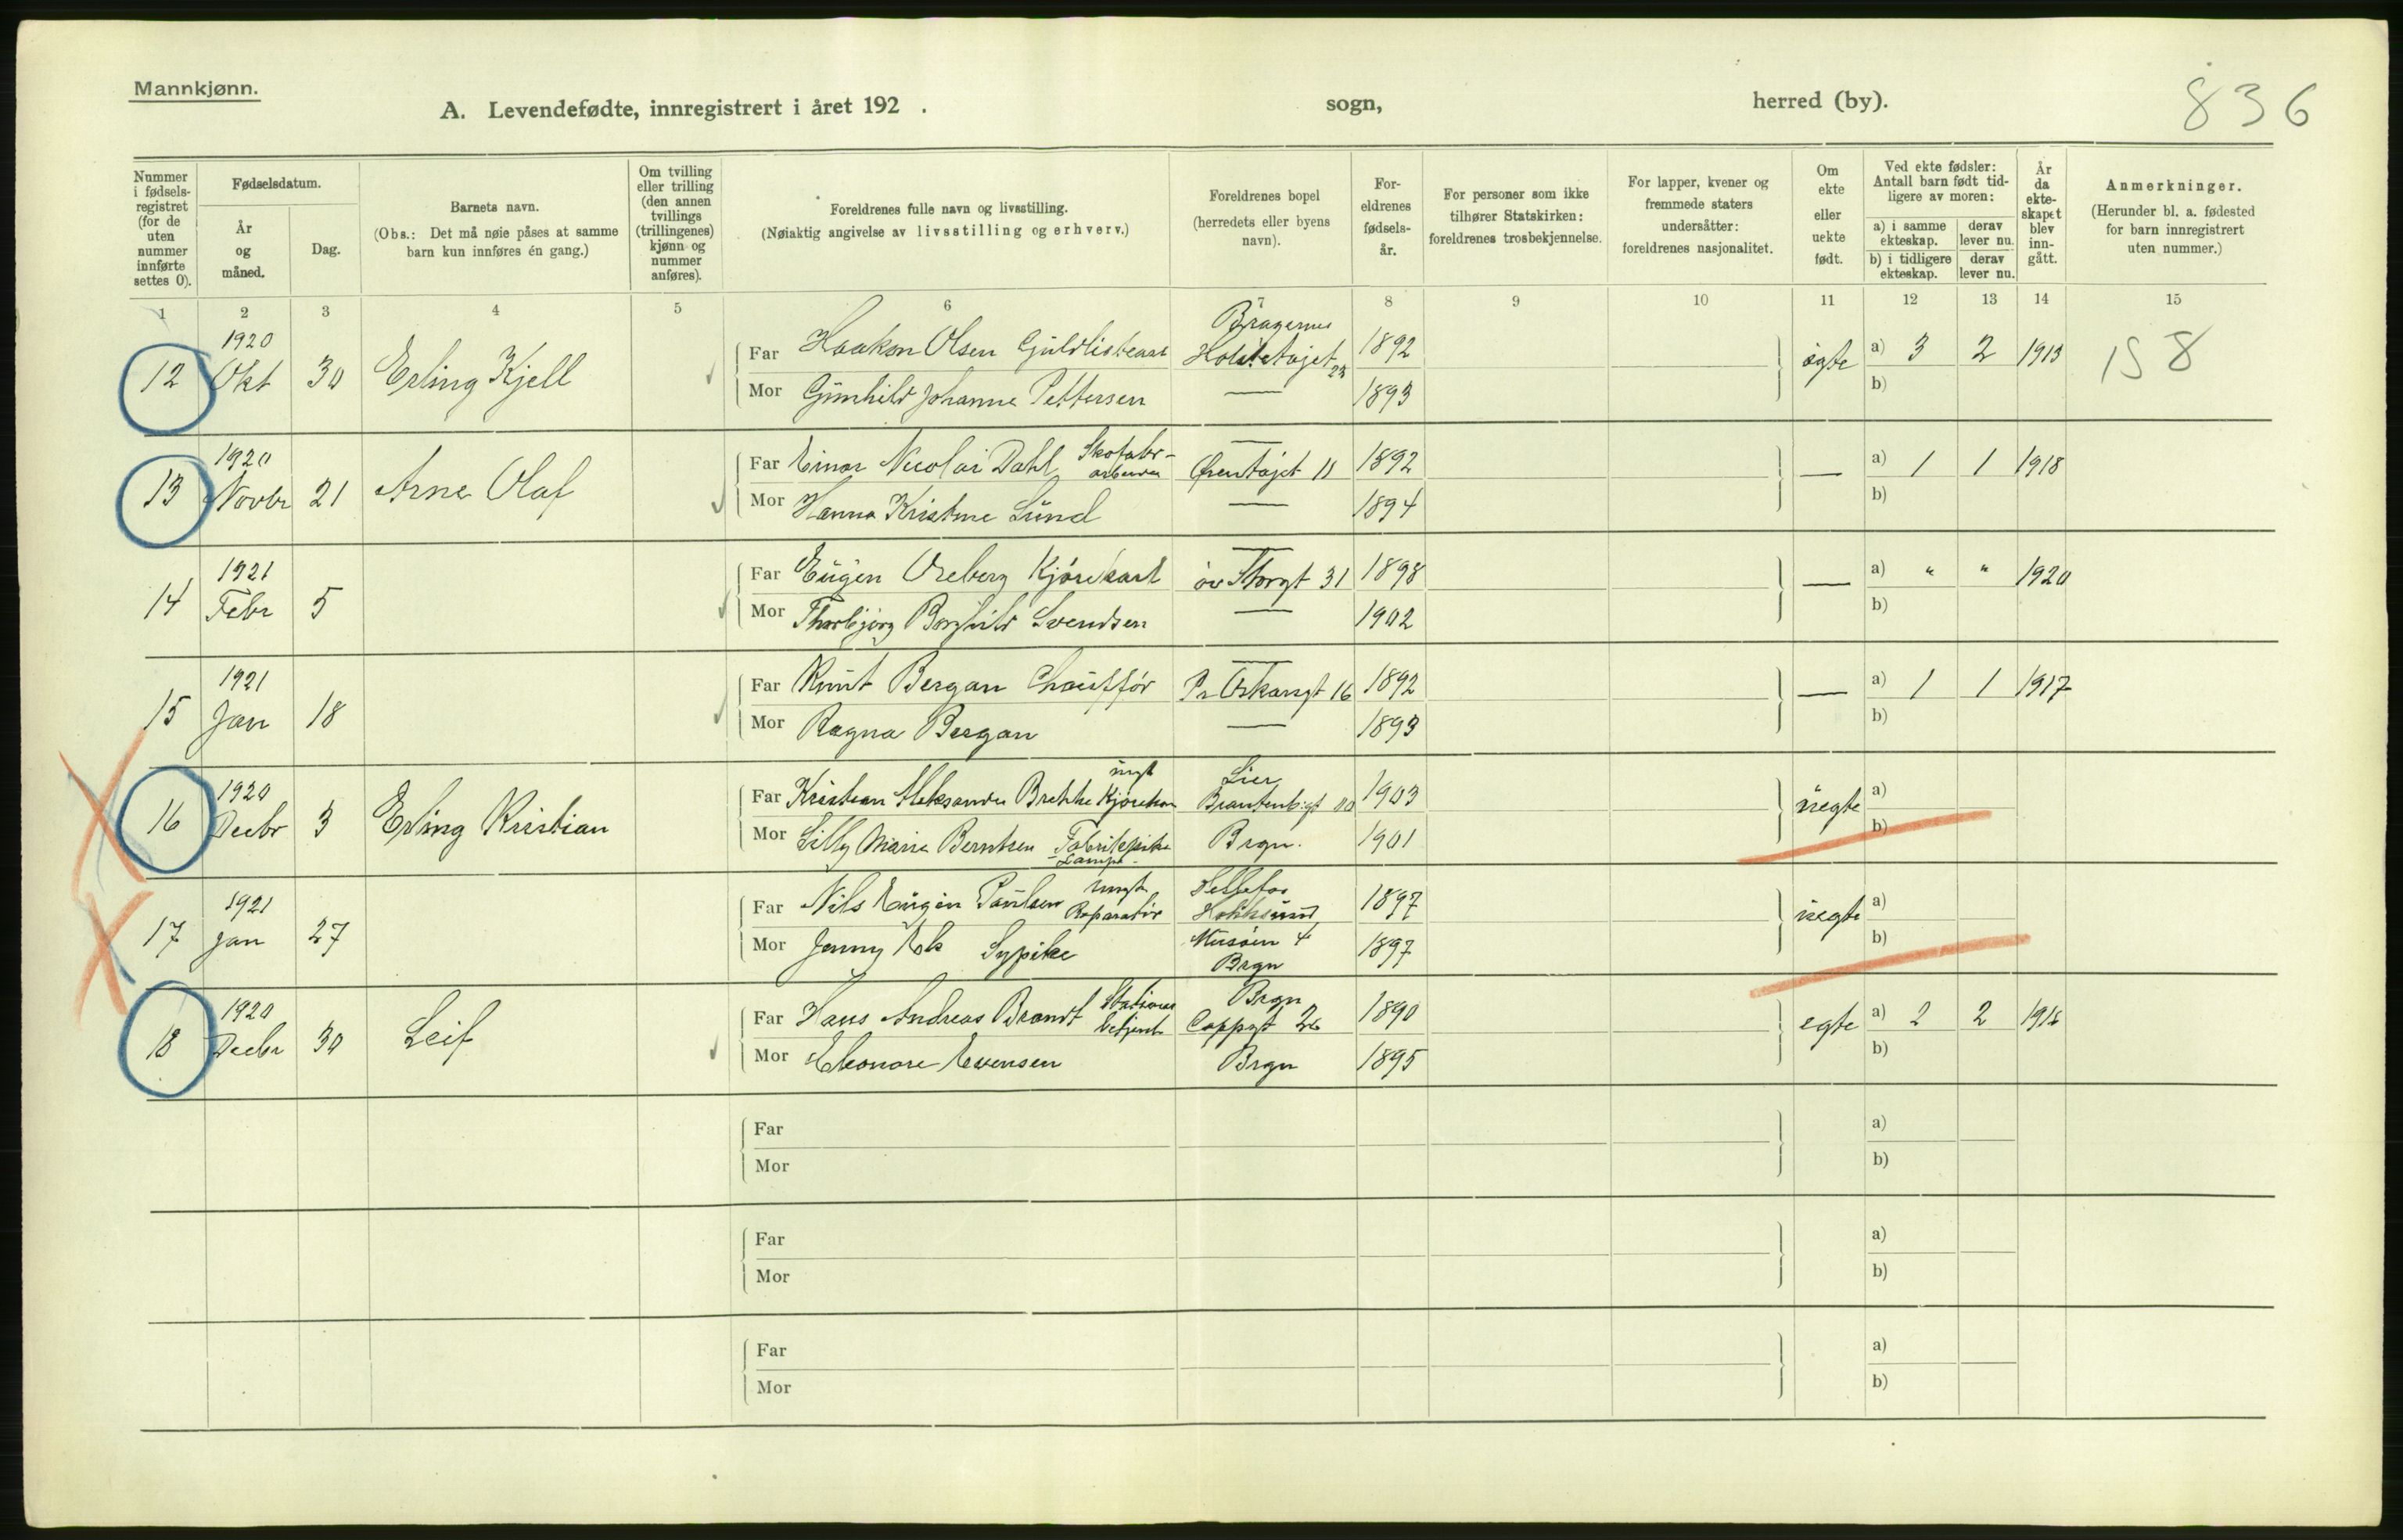 Mannkjønn.
A. Levendefødte, innregistrert i året 192 . sogn, herred (by).
836
Nummer i fødselsregistret (for de uten nummer innførte settes 0).
Fødselsdatum.
År og måned.
Dag.
Barnets navn.
(Obs.: Det må nøie påses at samme barn kun innføres én gang.)
Om tvilling eller trilling (den annen tvillings (trillingenes) kjønn og nummer anføres).
Foreldrenes fulle navn og livsstilling.
(Nøiaktig angivelse av livsstilling og erhverv.)
Foreldrenes bopel (herredets eller byens navn).
Foreldrenes fødselsår.
For personer som ikke tilhører Statskirken: foreldrenes trosbekjennelse.
For lapper, kvener og fremmede staters undersåtter: foreldrenes nasjonalitet.
Om ekte eller uekte født.
Ved ekte fødsler: Antall barn født tidligere av moren:
a) i samme ekteskap. derav lever nu.
b) i tidligere ekteskap. derav lever nu.
År da ekteskapet blev inngått.
Anmerkninger.
(Herunder bl. a. fødested for barn innregistrert uten nummer.)
1 2 3 4 5 6 7 8 9 10 11 12 13 14 15
12 1920 Okt 30 Erling Kjell
Far Haakon Olsen Bragernes 1892 a) 3 2 1913
158
Mor Gunhild Johanne Pettersen — 1893 b)
13 1920 Novbr 21 Arne Olaf
Far Einar Nicolai Dahl — Ørentøjet 11 1892 — a) 1 1 1918
Mor Hanna Kristine Lund — 1894 b)
14 1921 Febr 5
Far Eugen Oreberg Kjørekarl — øv Storgt 31 1898 — a) " " 1920
Mor Thorbjørg Borghild Svendsen — 1902 b)
15 1921 Jan 18
Far Knut Bergan Chauffør — Pr Oskarsgt 16 1892 — a) 1 1 1917
Mor Ragna Bergan — 1893 b)
16 1920 Decbr 3 Erling Kristian
Far Kristian Aleksander Brekke ungk Lier 1903 uegte a)
Mor Lilly Marie Berntsen Fabrikpike Brgn. 1901 b)
17 1921 Jan 27
Far Nils Eugen Paulsen ungk. Reparatør Hokksund 1897 uegte a)
Mor Jenny Ek Sypike 4 Brgn 1897 b)
18 1920 Decbr 30 Leif
Far Hans Andreas Brandt Stations betjent Brgn Cappgt 26 1890 egte a) 2 2 1916
Mor Eleonore Evensen Brgn 1895 b)
Far a)
Mor b)
Far a)
Mor b)
Far a)
Mor b)